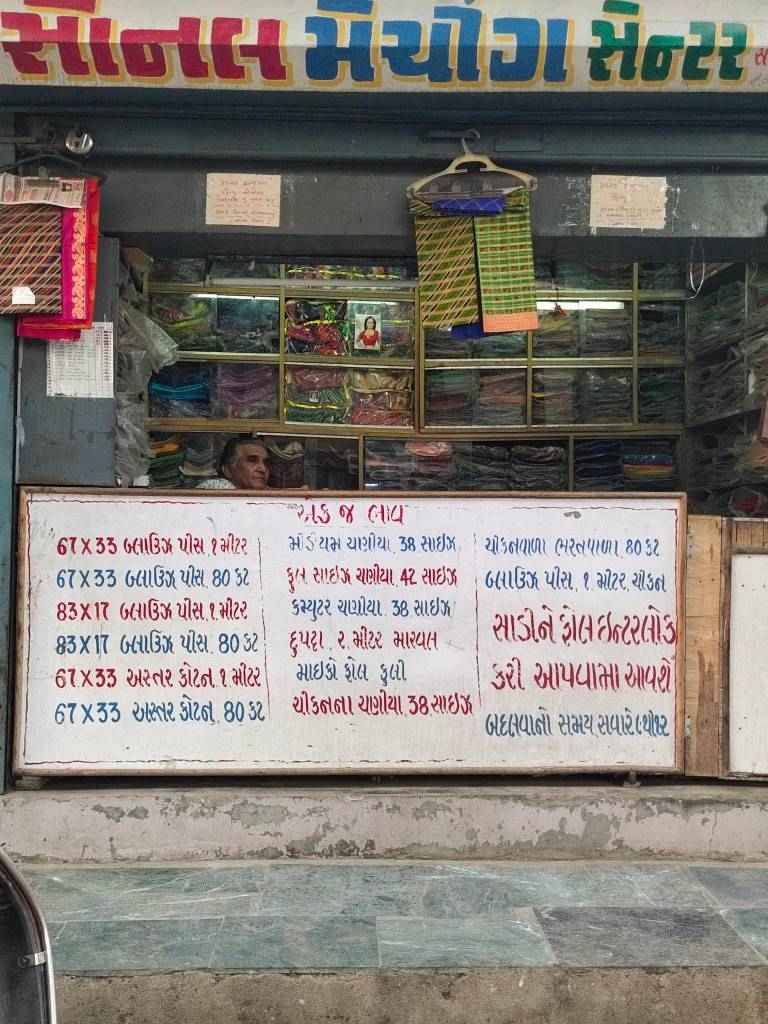 સોનલ મેચીંગ સેન્ટર
એક જ ભાવ
67X33 બ્લાઉઝ પીસ. ૧ મીટર
67X33 બ્લાઉઝ પીસ. 80 કટ
83X17 બ્લાઉઝ પીસ. ૧. મીટર
83X17 બ્લાઉઝ પીસ. 80 કટ
67X33 અસ્તર કોટન. ૧ મીટર
67X33 અસ્તર કોટન. 80 કટ
મીડીયમ ચણીયા. 38 સાઇઝ
ફુલ સાઇઝ ચણીયા. 42 સાઇઝ
કમ્યુટર ચણીયા. 38. સાઇઝ
દુપટ્ટા. ર. મીટર મારવલ
માઇકો ફોલ ફુલી
ચીકનના ચણીયા. 38. સાઇઝ
ચીકનવાળા ભરતવાળા. 80 કટ
બ્લાઉઝ પીસ. ૧. મીટર. ચીકન
સાડીને ફોલ ઇન્ટરલોક
કરી આપવામા આવશે
બદલવાનો સમય સવારે ૯ થી ૧૨